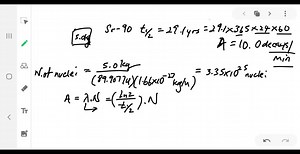 5.0kg Sr-90 t/2 = 29.1yrs = 29.1 x 365 x 24 x 60
A = 10.0 decays/min
N. of nuclei = 5.0kg / (89.9077u)(1.66x10⁻²⁷ kg/u) = 3.35x10²⁵ nuclei
A = λ.N = (ln2 / t/2) . N